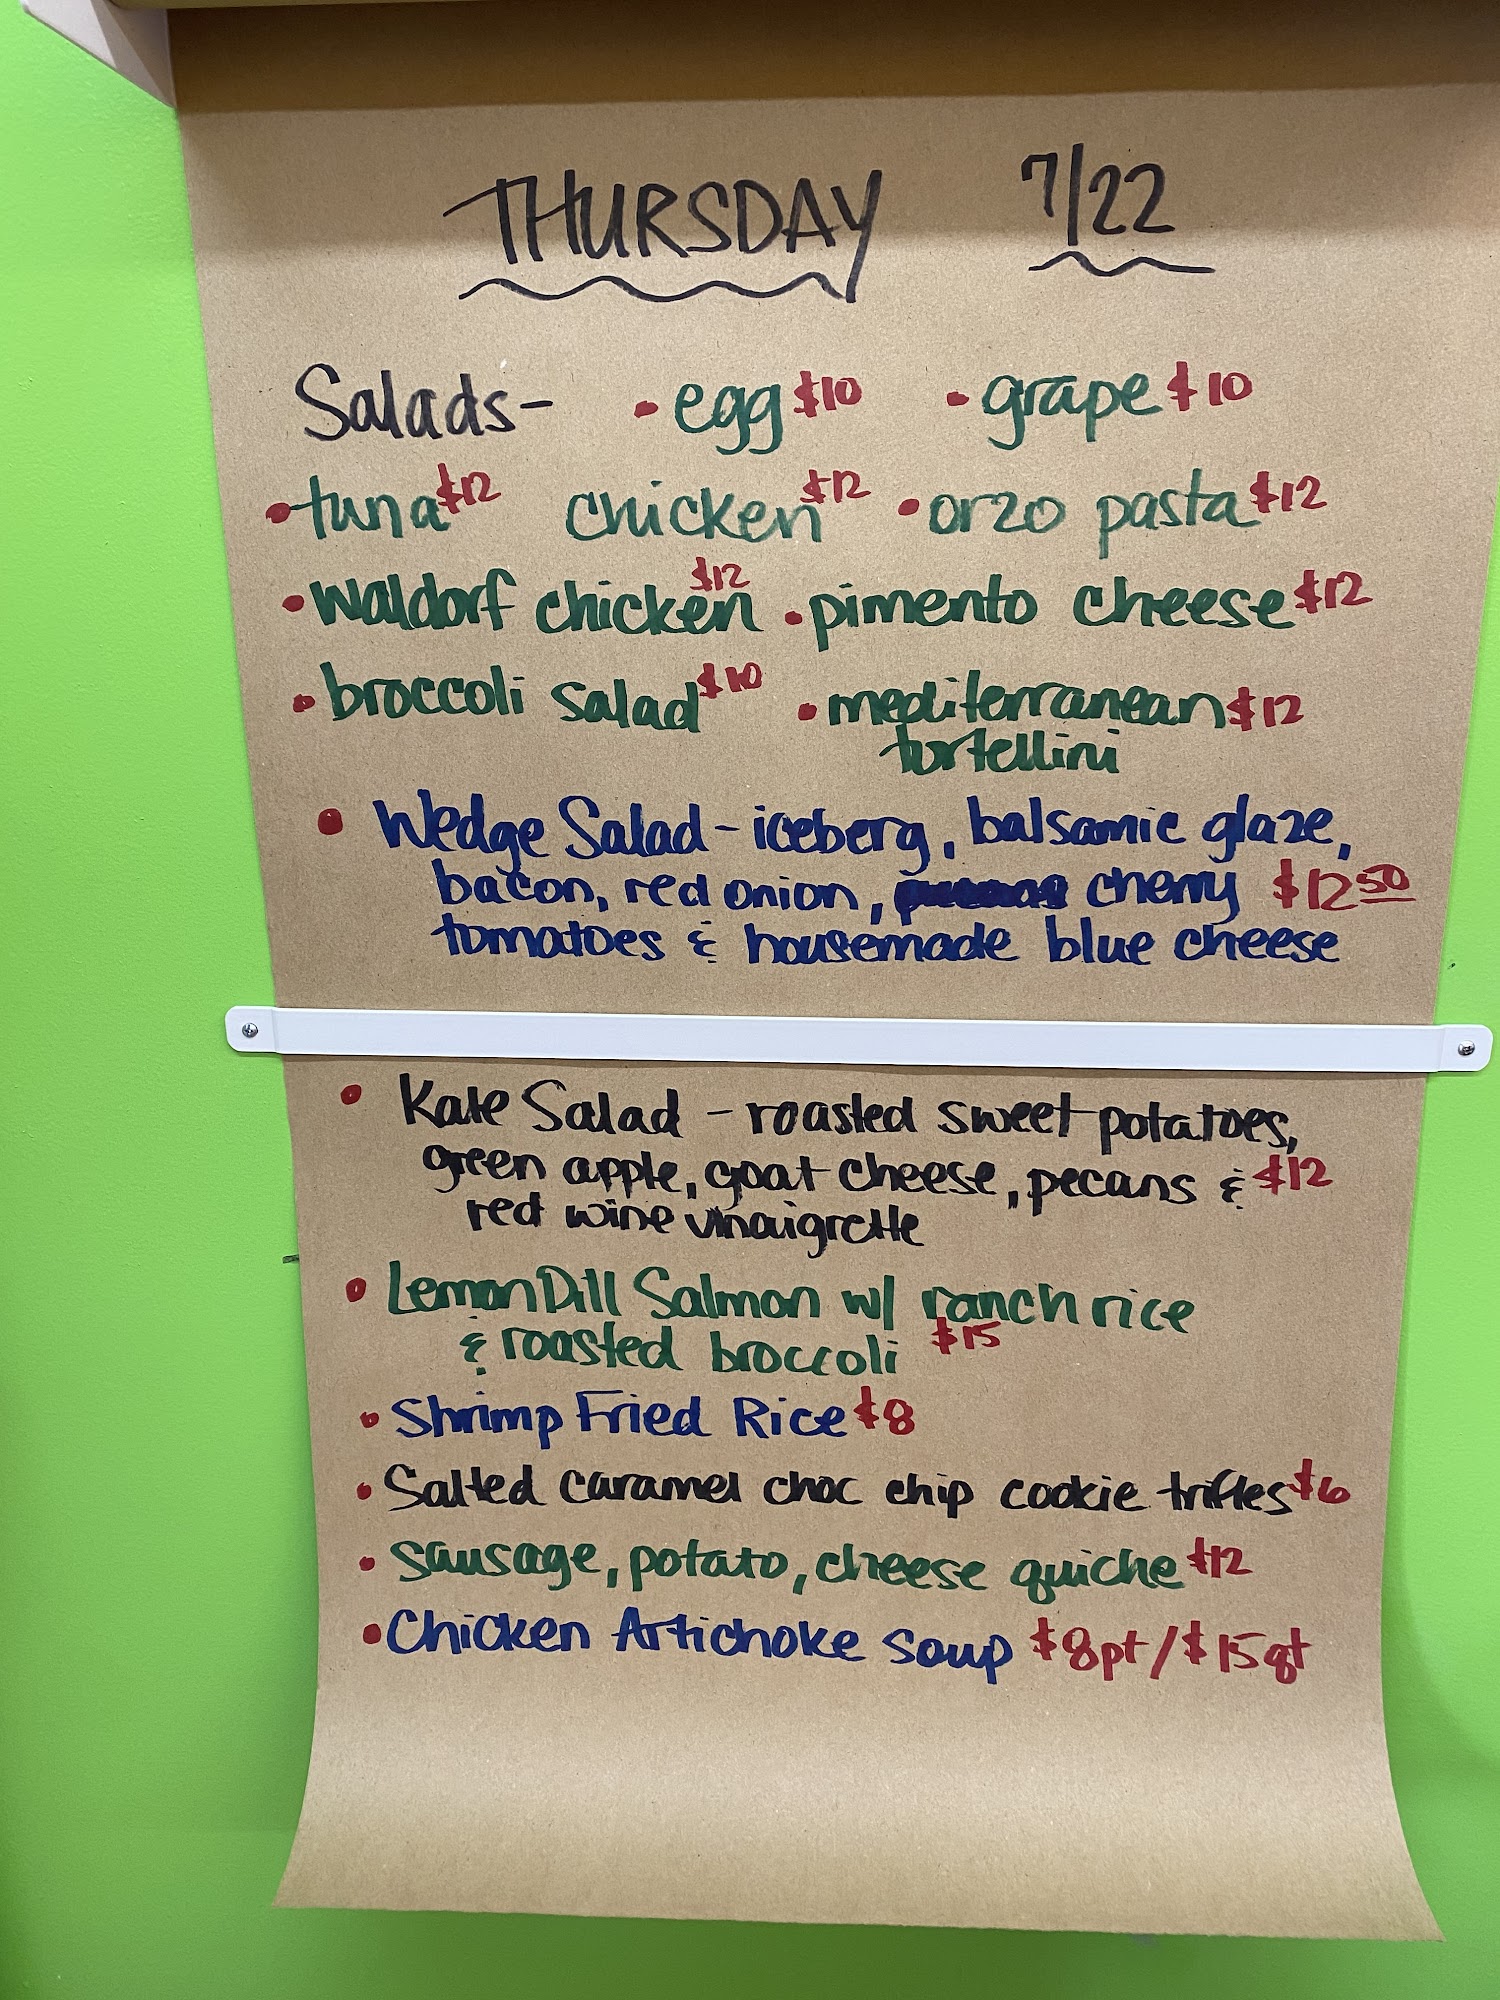 THURSDAY 7/22
Salads- • egg $10 • grape $10
• tuna $12 chicken $12 • orzo pasta $12
• waldorf chicken $12 • pimento cheese $12
• broccoli salad $10 • mediterranean $12
tortellini
• Wedge Salad - iceberg, balsamic glaze,
bacon, red onion, cherry $12.50
tomatoes & housemade blue cheese
• Kale Salad - roasted sweet potatoes,
green apple, goat cheese, pecans & $12
red wine vinaigrette
• Lemon Dill Salmon w/ ranch rice
& roasted broccoli $15
• Shrimp Fried Rice $8
• Salted caramel choc chip cookie trifles $6
• sausage, potato, cheese quiche $12
• Chicken Artichoke soup $8pt/$15qt